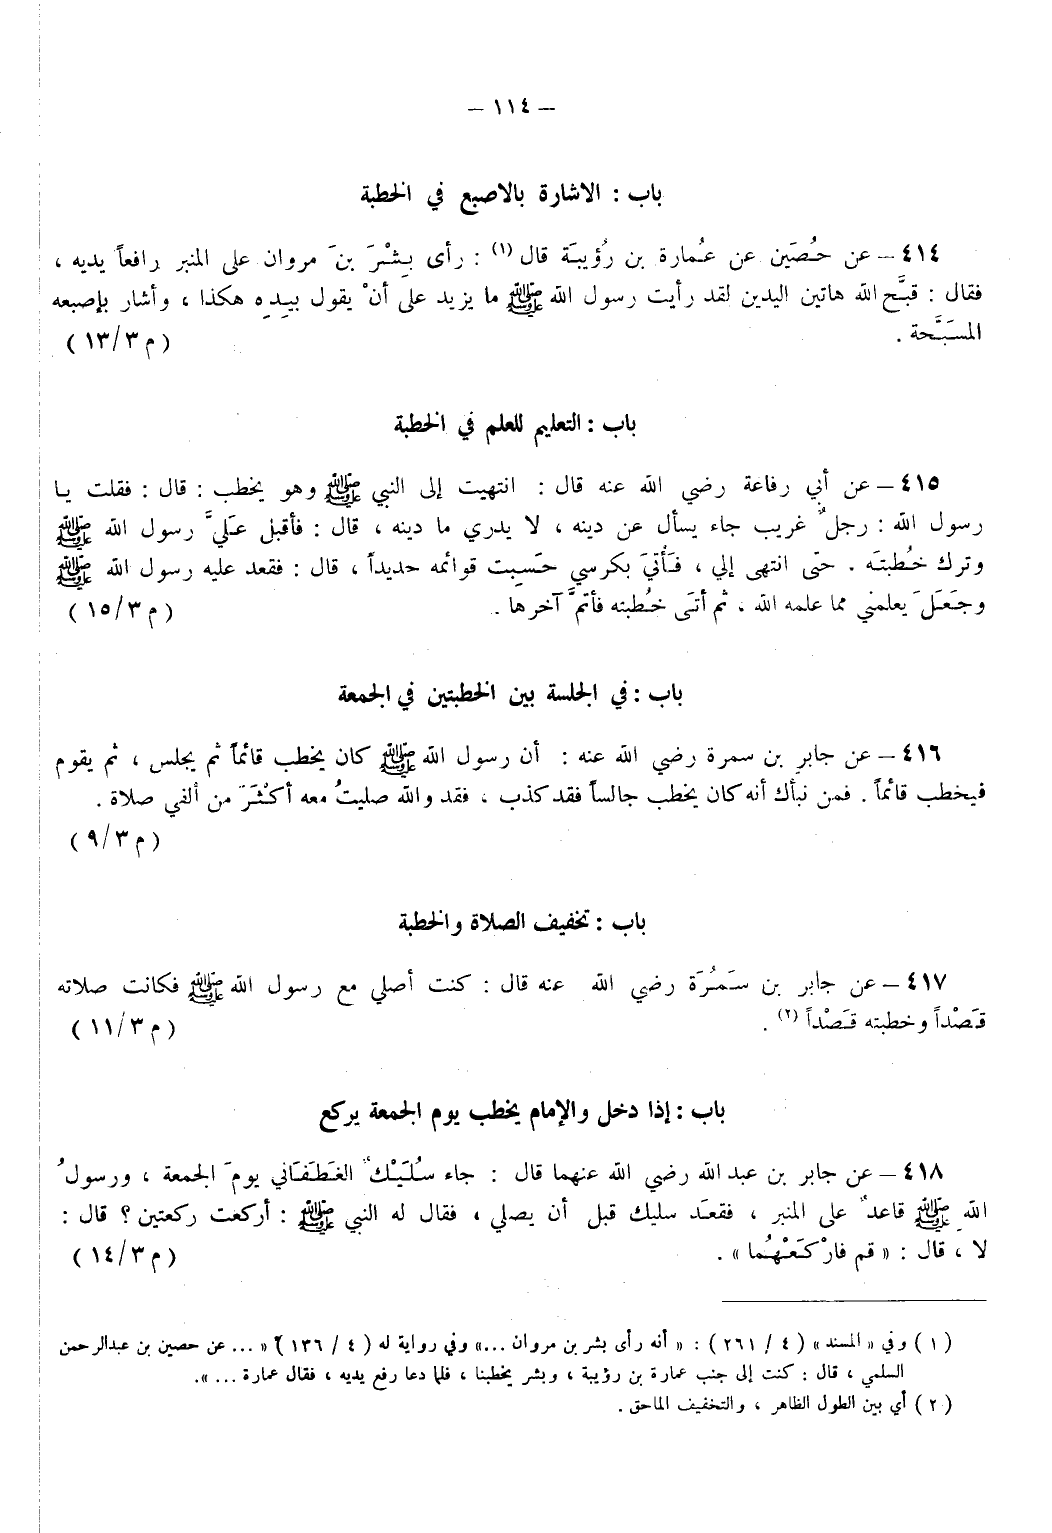 — ١١٤ —
باب : الاشارة بالاصبع في الخطبة
٤١٤ – عن حُصَين عن عُمارة بن رُؤَيبَة قال (١) : رأى بِشْرَ بنَ مروان على المنبر رافعاً يديه ،
فقال : قبَّح الله هاتين اليدين لقد رأيت رسول الله ﷺ ما يزيد على أنْ يقول بيدِه هكذا ، وأشار بإصبعه
المسَبَّحة .
( م ٣/١٣ )
باب : التعليم للعلم في الخطبة
٤١٥ – عن أبي رفاعة رضي الله عنه قال : انتهيت إلى النبي ﷺ وهو يخطب : قال : فقلت يا
رسول الله : رجلٌ غريب جاء يسأل عن دينه ، لا يدري ما دينه ، قال : فأقبل عَليَّ رسول الله ﷺ
وترك خُطبتَه . حتى انتهى إلي ، فَأُتيَ بكرسي حَسِبت قوائمه حديداً ، قال : فقعد عليه رسول الله ﷺ
وجَعَلَ يعلمني مما علمه الله ، ثم أتَى خُطبته فأتمَّ آخرها .
( م ٣/١٥ )
باب : في الجلسة بين الخطبتين في الجمعة
٤١٦ – عن جابرِ بن سمرة رضي الله عنه : أن رسول الله ﷺ كان يخطب قائماً ثم يجلس ، ثم يقوم
فيخطب قائماً . فمن نبأك أنه كان يخطب جالساً فقد كذب ، فقد والله صليتُ معه أكثَرَ من ألفي صلاة .
( م ٣/٩ )
باب : تخفيف الصلاة والخطبة
٤١٧ – عن جابر بن سَمُرَة رضي الله عنه قال : كنت أصلي مع رسول الله ﷺ فكانت صلاته
قَصْداً وخطبته قَصْداً (٢) .
( م ٣/١١ )
باب : إذا دخل والإمام يخطب يوم الجمعة يركع
٤١٨ – عن جابر بن عبد الله رضي الله عنهما قال : جاء سُلَيْكٌ الغَطَفَاني يومَ الجمعة ، ورسولُ
اللهِ ﷺ قاعدٌ على المنبر ، فقعَد سليك قبل أن يصلي ، فقال له النبي ﷺ : أركعت ركعتين ؟ قال :
لا ، قال : « قم فارْكَعْهُما » .
( م ٣/١٤ )
( ١ ) وفي « المسند » ( ٤ / ٢٦١ ) : « أنه رأى بشر بن مروان ...» وفي رواية له ( ٤ / ١٣٦ ) « ... عن حصين بن عبدالرحمن
السلمي ، قال : كنت إلى جنب عمارة بن رؤيبة ، وبشر يخطبنا ، فلما دعا رفع يديه ، فقال عمارة ... ».
( ٢ ) أي بين الطول الظاهر ، والتخفيف الماحق .